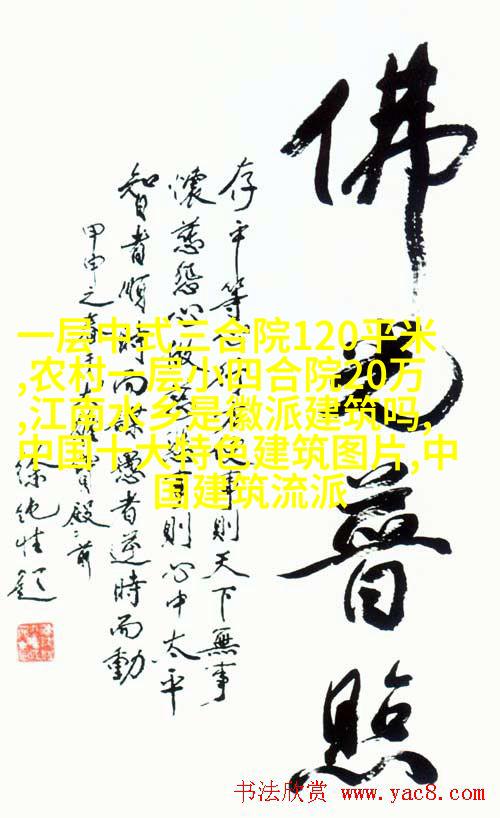 佛光普照
存平等心行方便事則天下無事
懷慈悲心做慈悲事則心中太平
智者順時而謀愚者逆時而動
甲申之
徐純性題
一层中式三合院120平米
,农村一层小四合院20万
,江南水乡是徽派建筑吗,
中国十大特色建筑图片,中
国建筑流派
书法欣赏 www.yac8.com